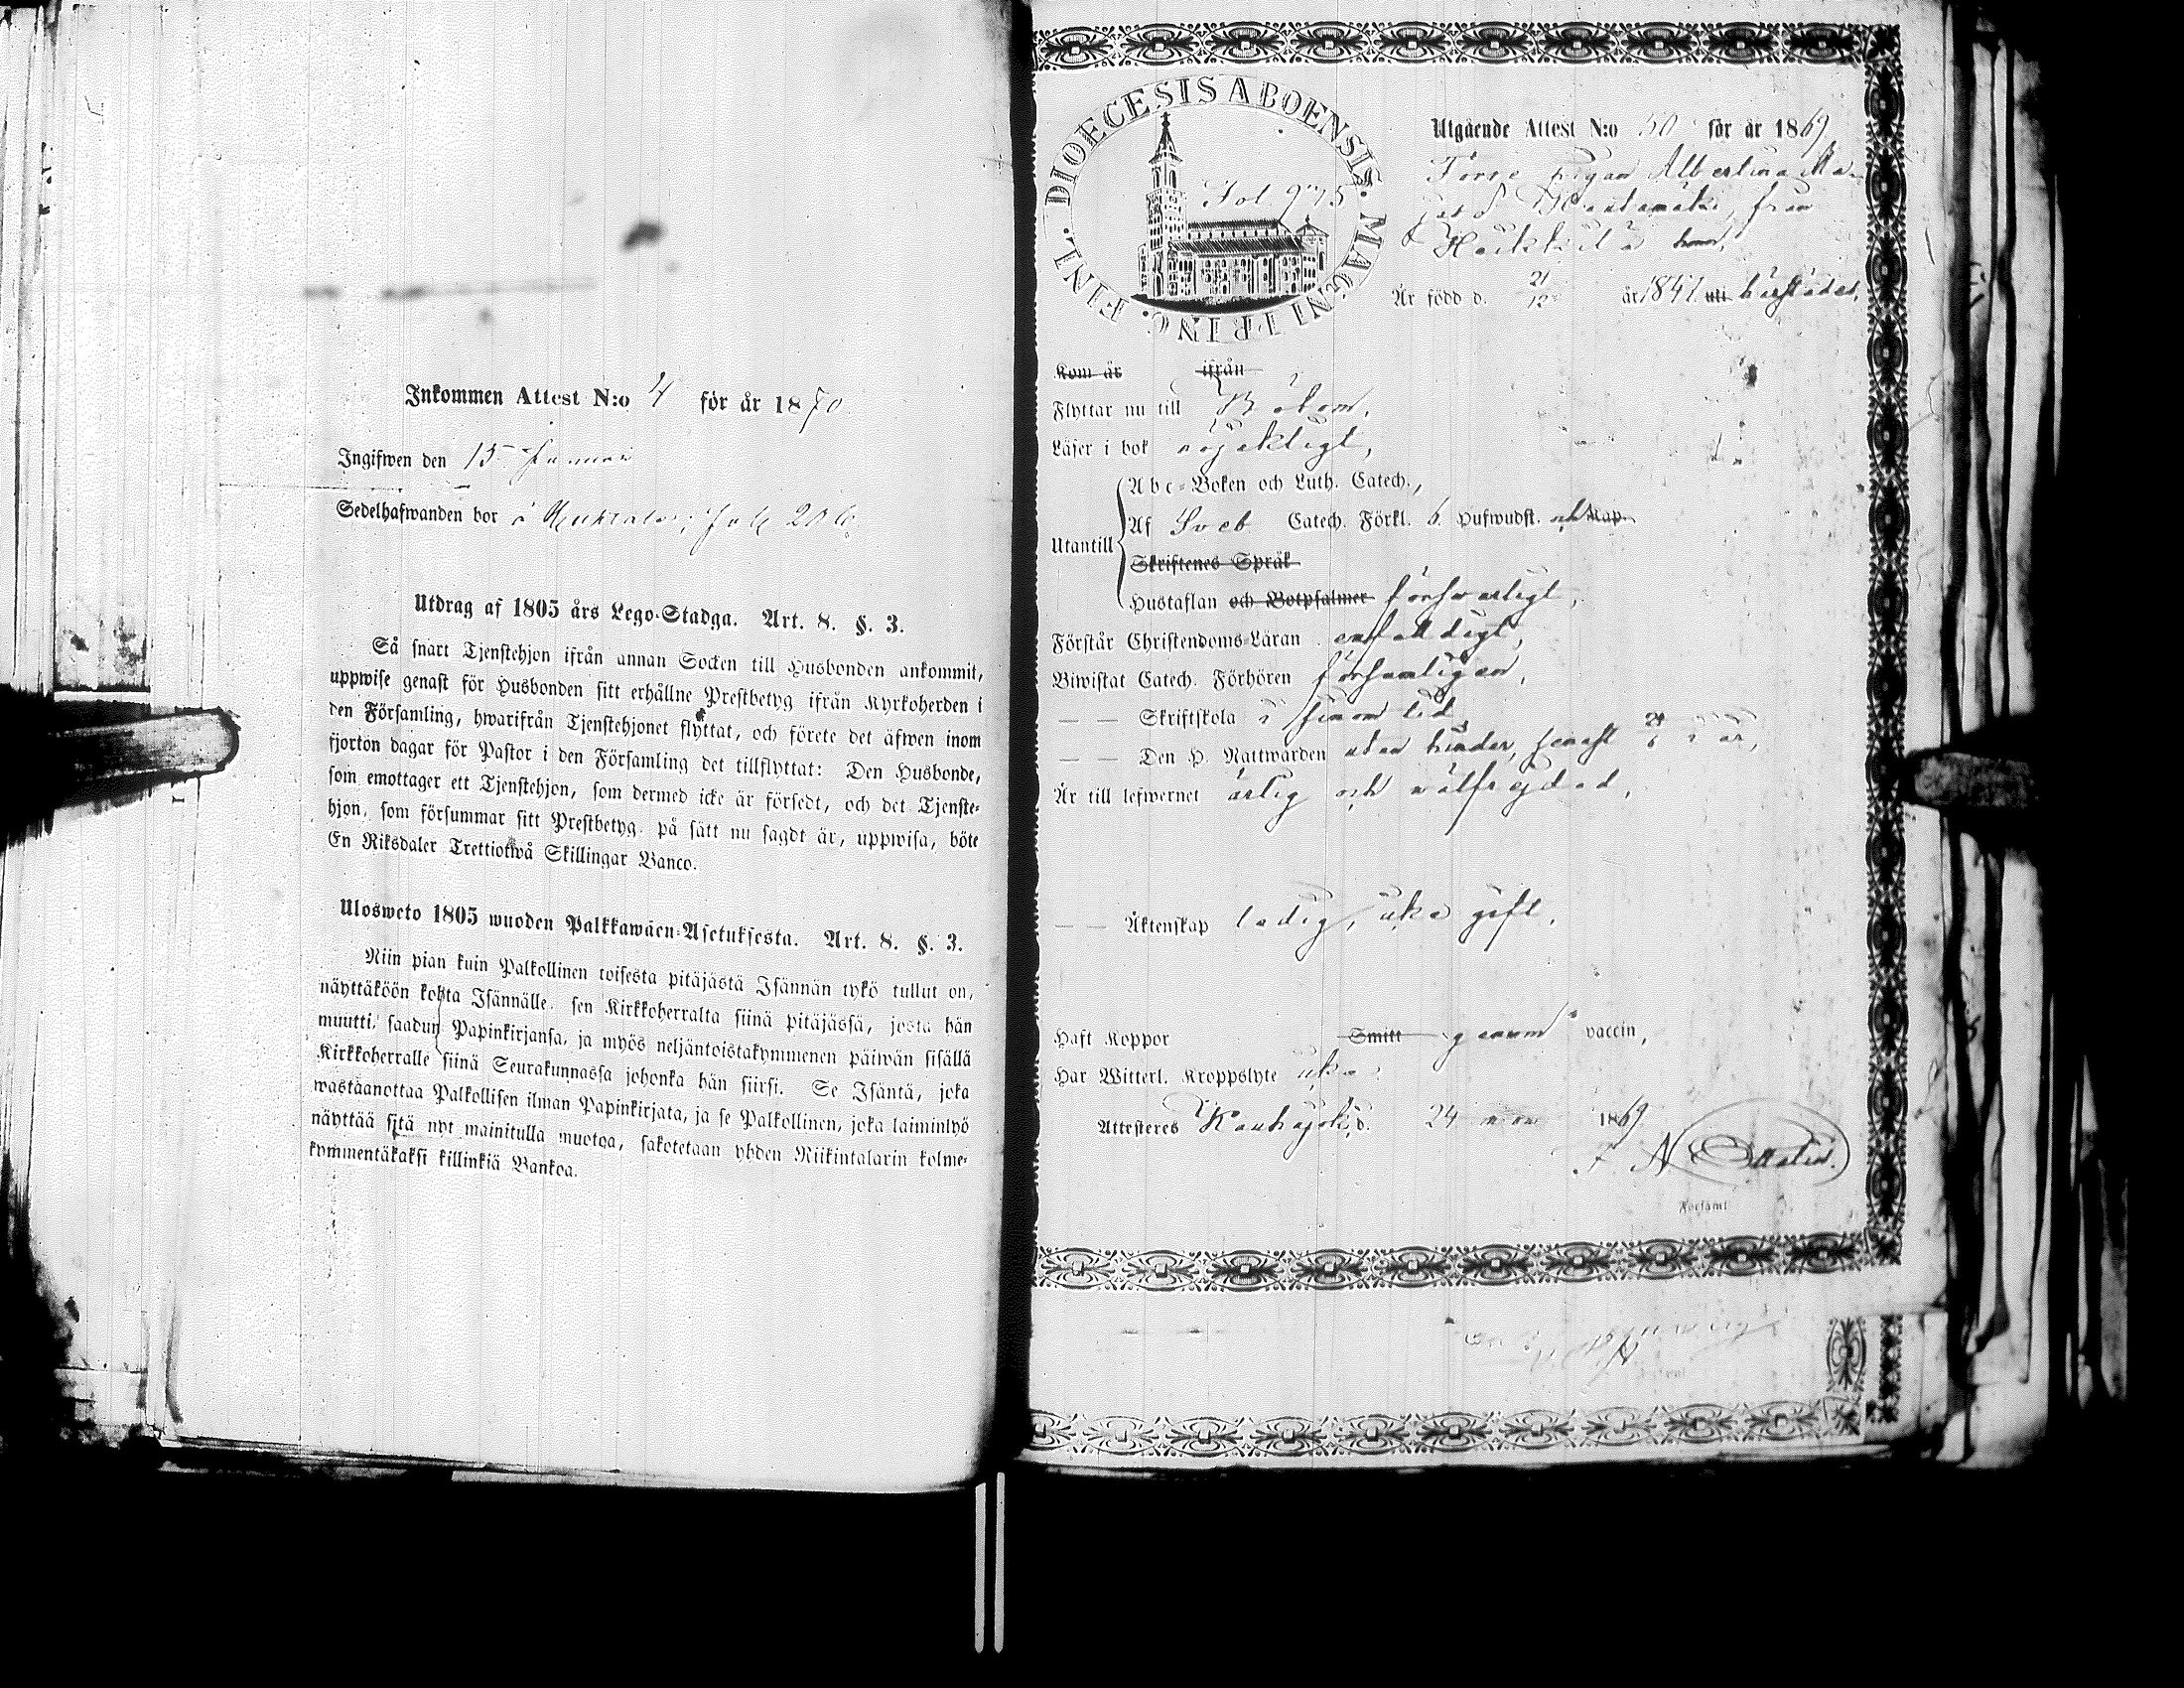 Inkommen Attest N:o 4 för år 1870.
Ingifwen den 15 Januari
Sedelhafwanden bor å
Utdrag af 1805 års Lego-Stadga. Art. 8. §. 3.
Så snart Tjenstehjon ifrån annan Socken till Husbonden ankommit,
uppwise genast för Husbonden sitt erhållne Prestbetyg ifrån Kyrkoherden i
den Församling, hwarifrån Tjenstehjonet flyttat, och förete det äfwen inom
fjorton dagar för Pastor i den Församling det tillflyttat: Den Husbonde,
som emottager ett Tjenstehjon, som dermed icke är försedt, och det Tjenste-
hjon, som försummar sitt Prestbetyg på sätt nu sagdt är, uppwisa, böte
En Riksdaler Trettiotwå Skillingar Banco.
Ulosweto 1805 wuoden Palkkawäen-Asetuksesta. Art. 8. §. 3.
Niin pian kuin Palkollinen toisesta pitäjästä Isännän tykö tullut on,
näyttäköön kohta Isännälle sen Kirkkoherralta siinä pitäjässä, josta hän
muutti, saadun Papinkirjansa, ja myös neljäntoistakymmenen päiwän sisällä
Kirkkoherralle siinä Seurakunnassa johonka hän siirsi. Se Isäntä, joka
wastaanottaa Palkollisen ilman Papinkirjata, ja se Palkollinen, joka laiminlyö
näyttää sitä nyt mainitulla muotoa, sakotetaan yhden Riikintalarin kolme-
kymmentäkaksi killinkiä Bankoa.
DIOECESIS ABOENSIS. MAGNI PRINC. FINL.
Fol. 975
Utgående Attest N:o 50 för år 1869
Förre pigan Albertina Ma-
från
Är född d. 21/12 år 1841 uti härstädes,
Kom år ifrån
Flyttar nu till Bötom,
Läser i bok nöjaktigt,
Abc-Boken och Luth. Catech.,
Utantill Af Sveb. Catech. Förkl. 6 Hufwudst. och Kap.
Skriftenes Språk
Hustaflan och Botpsalmer försvarligt,
Förstår Christendoms-Läran enfaldigt,
Biwistat Catech. Förhören församligen,
— — Skriftskola i sinom tid,
— — Den H. Nattwarden utan hinder, senast 24/6 i år,
Är till lefwernet ärlig och wälfrejdad,
— — Äktenskap ledig, icke gift,
Haft Koppor Smitt genom vaccin,
Har Witterl. Kroppslyte icke
Attesteres Kauhajoki, d. 24 1869
F. N.
Församl